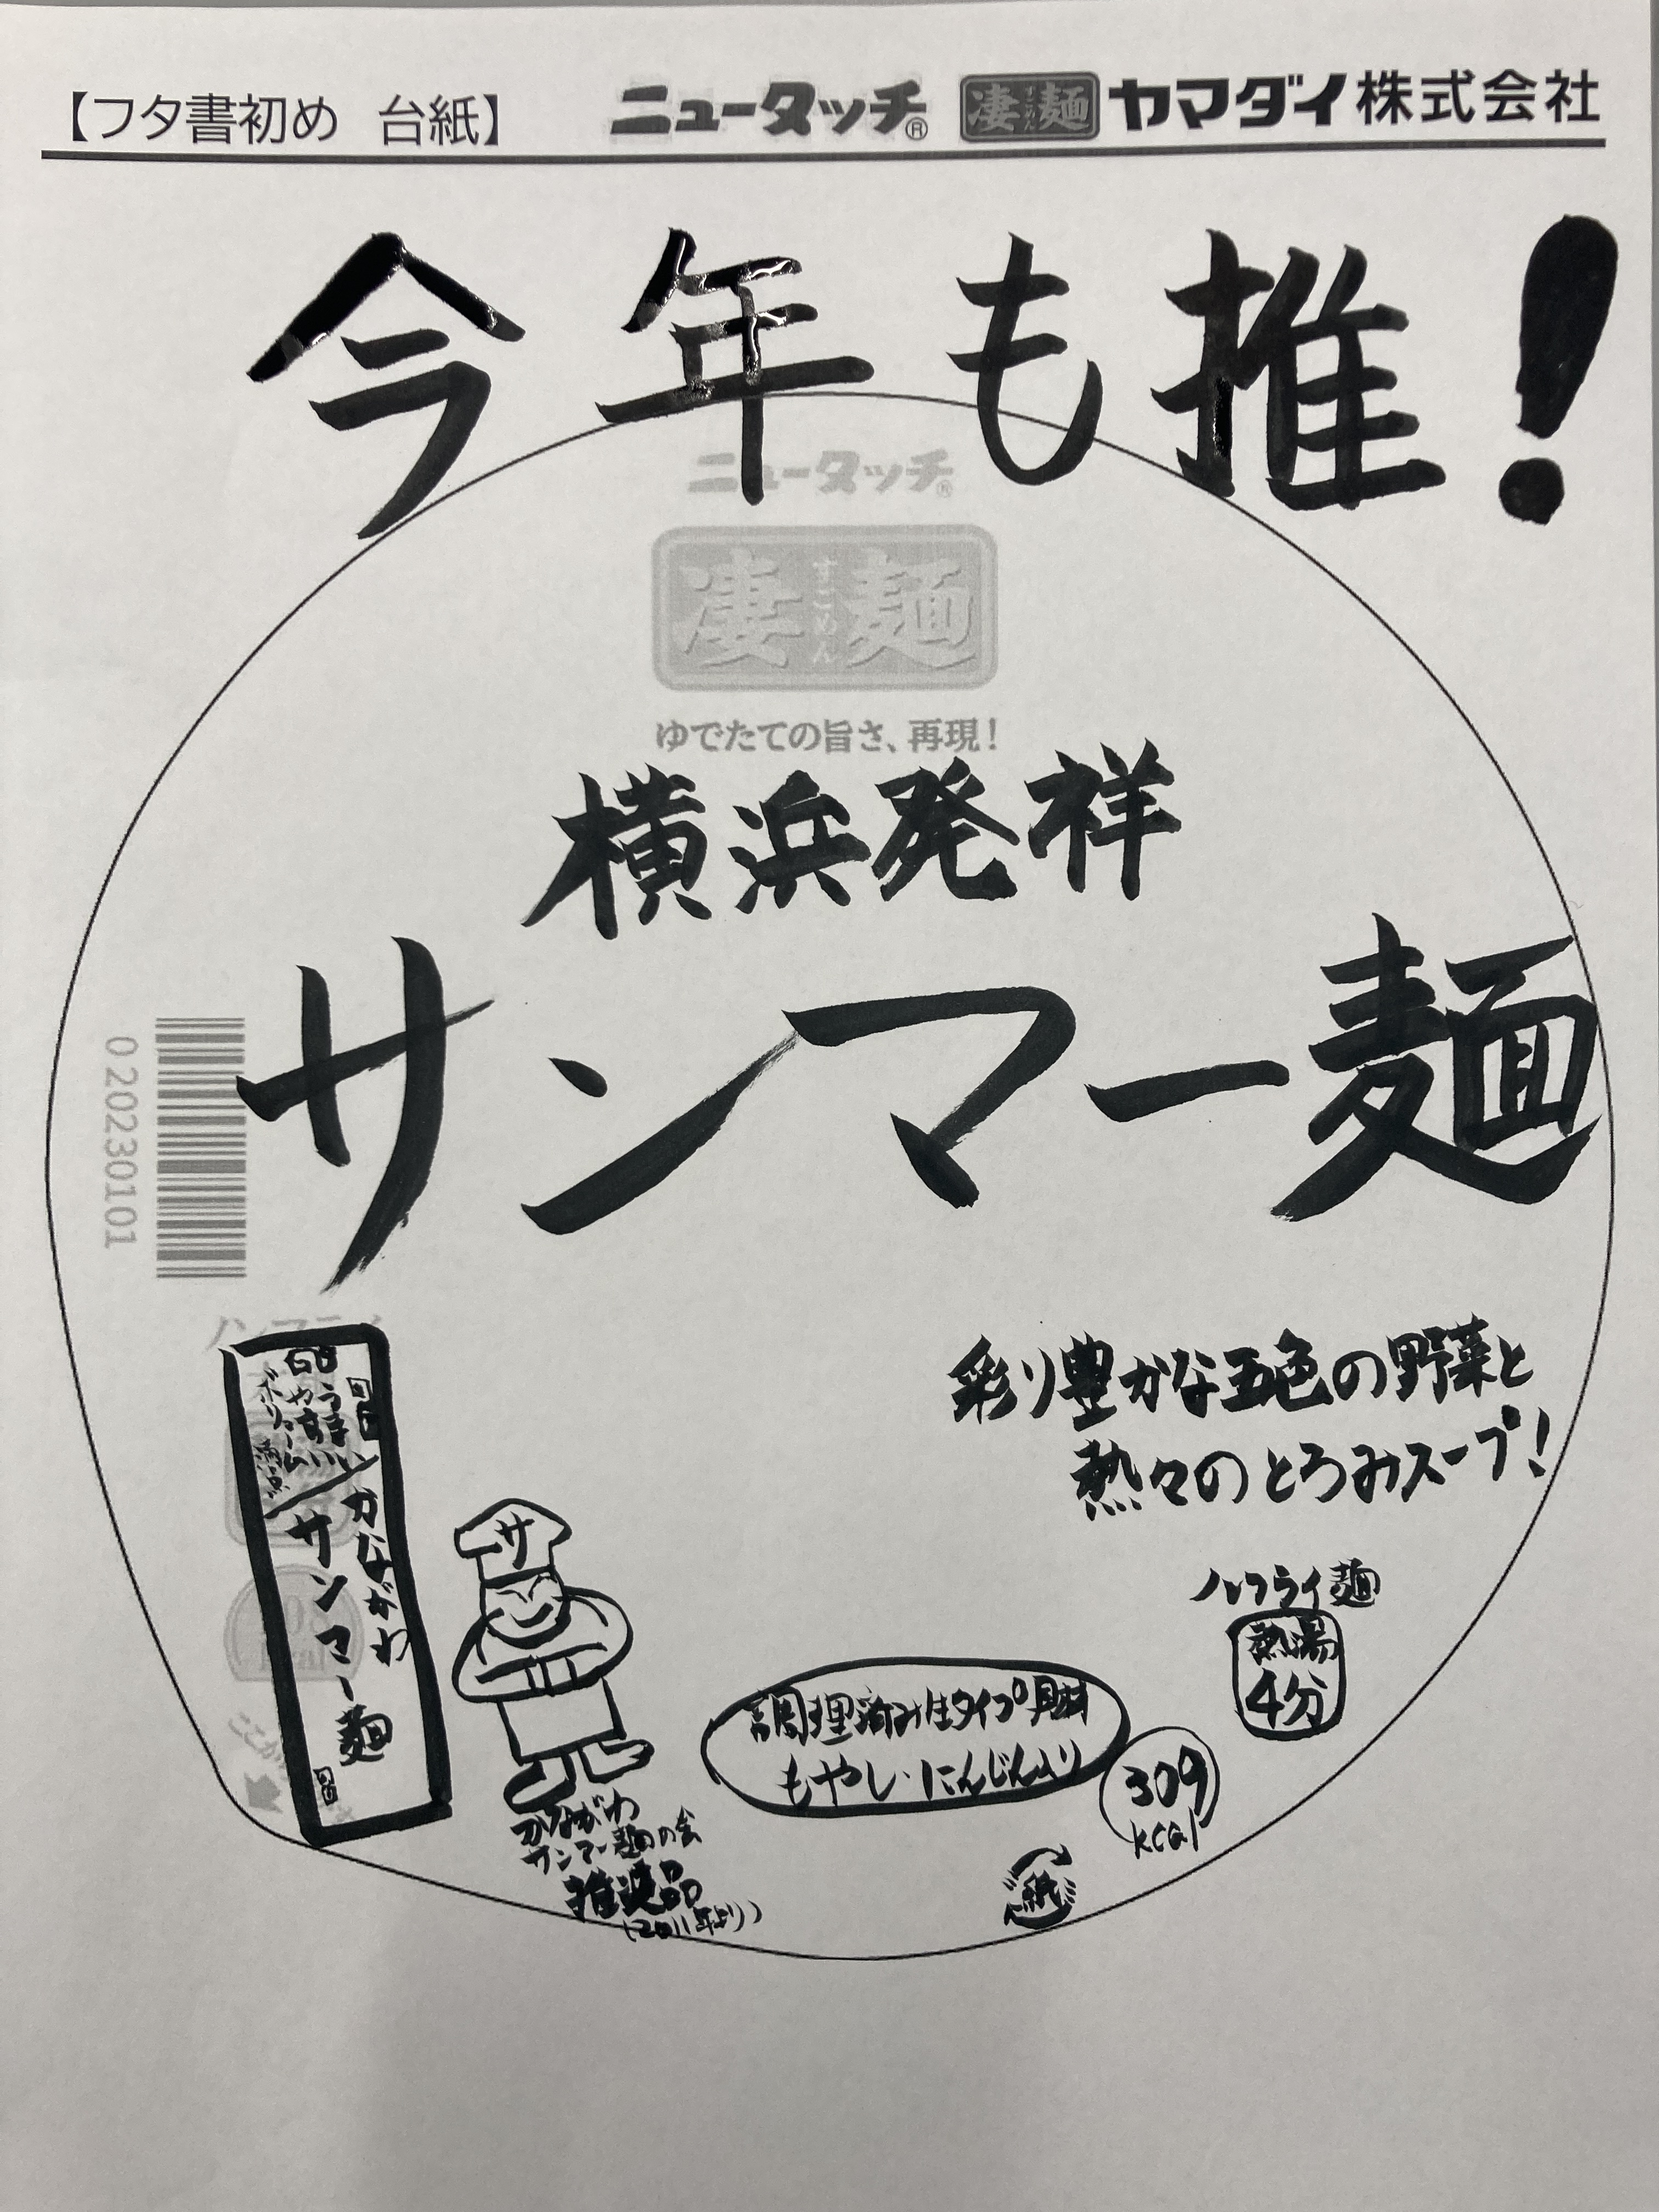 【フタ書初め 台紙】 ニュータッチ® 凄麺 すごめん ヤマダイ株式会社
今年も推!
ニュータッチ®
凄麺 すごめん
ゆでたての旨さ、再現!
横浜発祥
サンマー麺
0 20230101
彩り豊かな五色の野菜と
熱々のとろみスープ!
ノンフライ
うまい
やすい
ボリューム満点
かながわ
サンマー麺
サ
ノンフライ麺
熱湯
4分
調理済み生タイプ具材
もやし・にんじん入り
309
kcal
かながわ
サンマー麺の会
推奨品
(2011年より)
紙